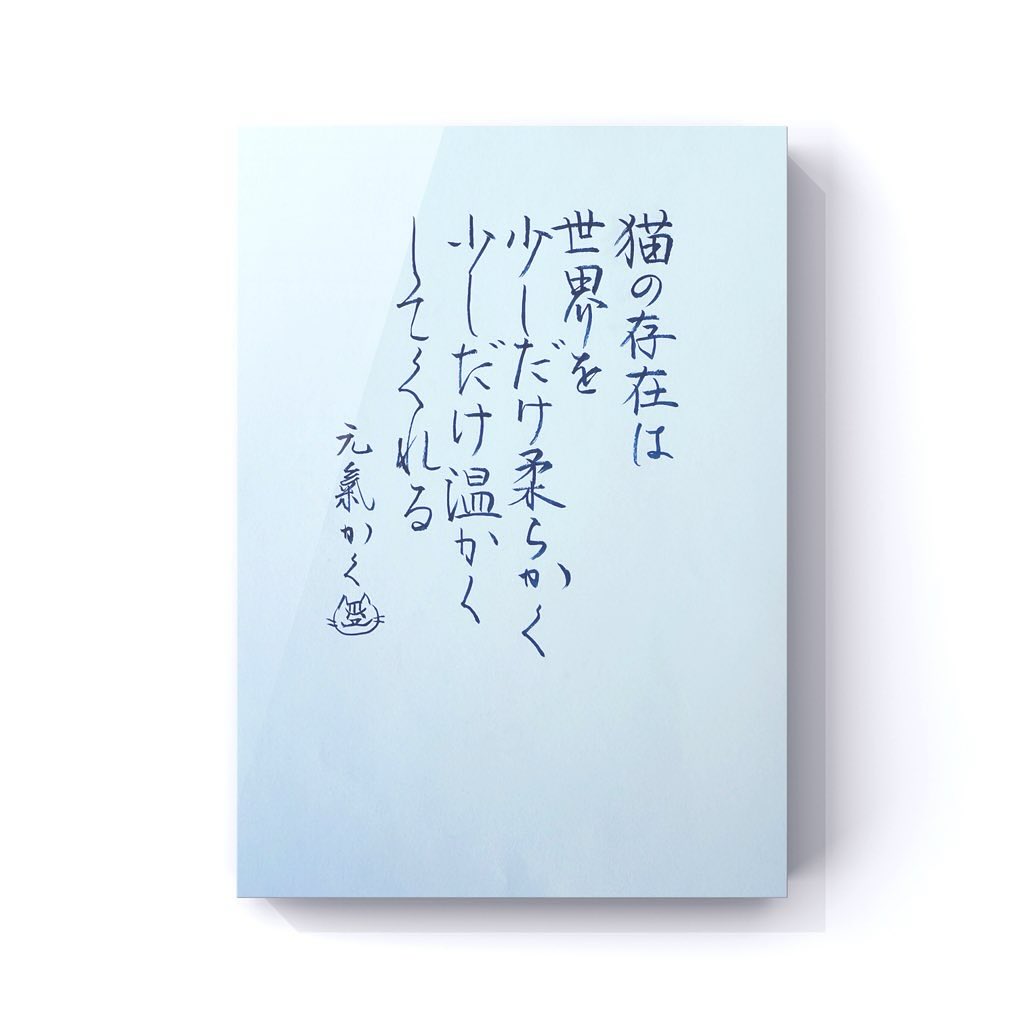 猫の存在は
世界を
少しだけ柔らかく
少しだけ温かく
してくれる
元氣かく